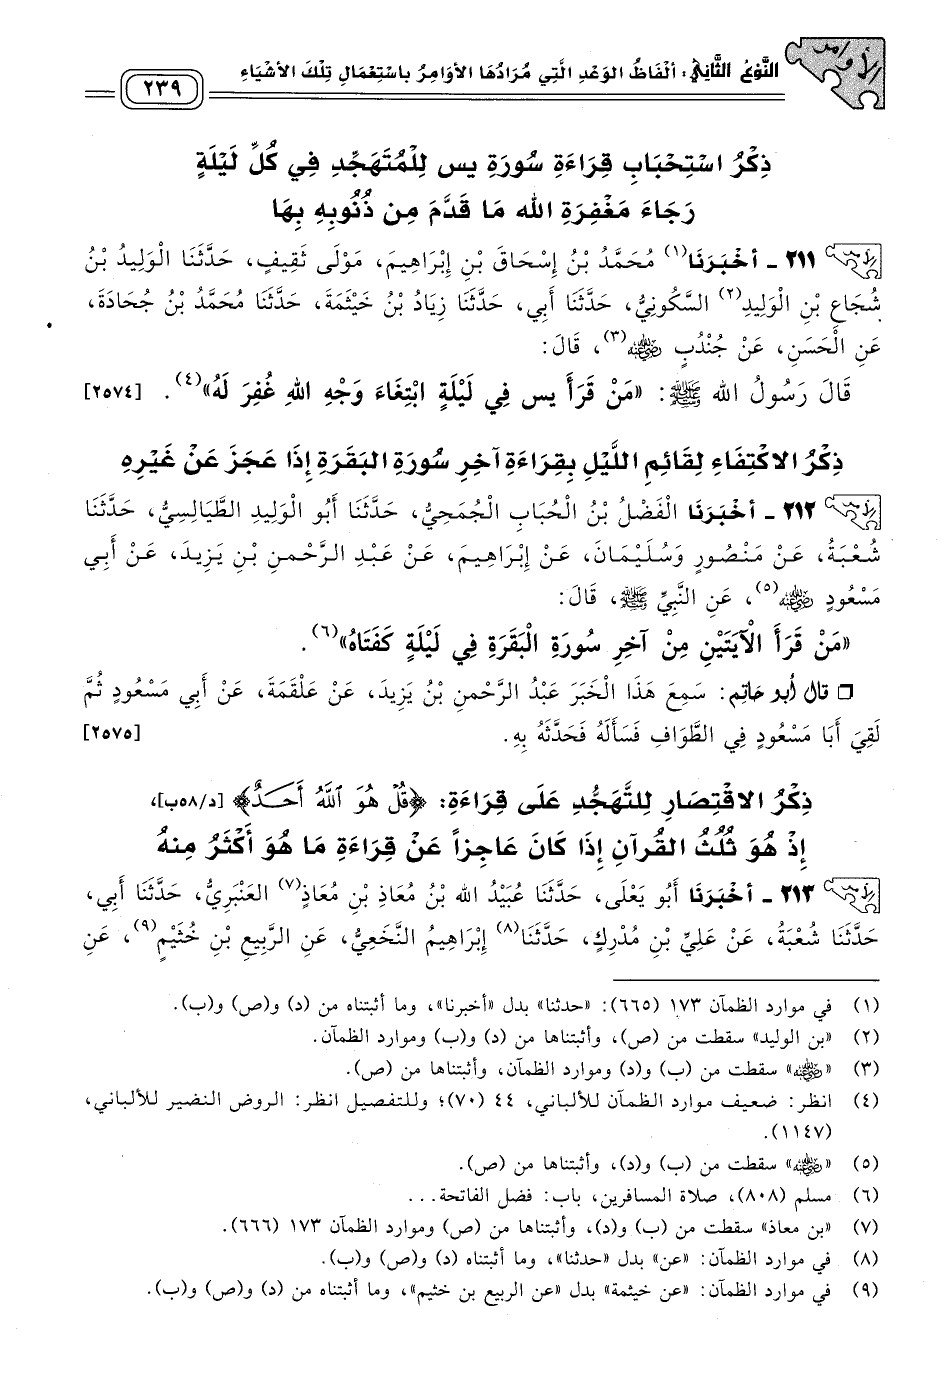 الأوامر
النَّوْعُ الثَّانِي: أَلْفَاظُ الوَعْدِ الَّتِي مُرَادُهَا الأَوَامِرُ بِاسْتِعْمَالِ تِلْكَ الأَشْيَاءِ
٢٣٩
ذِكْرُ اسْتِحْبَابِ قِرَاءَةِ سُورَةِ يس لِلْمُتَهَجِّدِ فِي كُلِّ لَيْلَةٍ
رَجَاءَ مَغْفِرَةِ الله مَا قَدَّمَ مِن ذُنُوبِهِ بِهَا
٢١١ - أَخْبَرَنَا(١) مُحَمَّدُ بْنُ إِسْحَاقَ بْنِ إِبْرَاهِيمَ، مَوْلَى ثَقِيفٍ، حَدَّثَنَا الْوَلِيدُ بْنُ
شُجَاعِ بْنِ الْوَلِيدِ(٢) السَّكُونِيُّ، حَدَّثَنَا أَبِي، حَدَّثَنَا زِيَادُ بْنُ خَيْثَمَةَ، حَدَّثَنَا مُحَمَّدُ بْنُ جُحَادَةَ،
عَنِ الْحَسَنِ، عَنْ جُنْدُبٍ رضي الله عنه(٣)، قَالَ:
قَالَ رَسُولُ الله ﷺ: «مَنْ قَرَأَ يس فِي لَيْلَةٍ ابْتِغَاءَ وَجْهِ اللهِ غُفِرَ لَهُ»(٤). [٢٥٧٤]
ذِكْرُ الاكْتِفَاءِ لِقَائِمِ اللَّيْلِ بِقِرَاءَةِ آخِرِ سُورَةِ البَقَرَةِ إِذَا عَجَزَ عَنْ غَيْرِهِ
٢١٢ - أَخْبَرَنَا الْفَضْلُ بْنُ الْحُبَابِ الْجُمَحِيُّ، حَدَّثَنَا أَبُو الْوَلِيدِ الطَّيَالِسِيُّ، حَدَّثَنَا
شُعْبَةُ، عَنْ مَنْصُورٍ وَسُلَيْمَانَ، عَنْ إِبْرَاهِيمَ، عَنْ عَبْدِ الرَّحْمنِ بْنِ يَزِيدَ، عَنْ أَبِي
مَسْعُودٍ رضي الله عنه(٥)، عَنِ النَّبِيِّ ﷺ، قَالَ:
«مَنْ قَرَأَ الْآيَتَيْنِ مِنْ آخِرِ سُورَةِ الْبَقَرَةِ فِي لَيْلَةٍ كَفَتَاهُ»(٦).
❒ قال أبو حاتِم: سَمِعَ هَذَا الْخَبَرَ عَبْدُ الرَّحْمنِ بْنُ يَزِيدَ، عَنْ عَلْقَمَةَ، عَنْ أَبِي مَسْعُودٍ ثُمَّ
لَقِيَ أَبَا مَسْعُودٍ فِي الطَّوَافِ فَسَأَلَهُ فَحَدَّثَهُ بِهِ. [٢٥٧٥]
ذِكْرُ الاقْتِصَارِ لِلتَّهَجُّدِ عَلَى قِرَاءَةِ: ﴿قُلْ هُوَ ٱللَّهُ أَحَدٌ﴾ [د/٥٨ب]،
إِذْ هُوَ ثُلُثُ القُرآنِ إِذَا كَانَ عَاجِزاً عَنْ قِرَاءَةِ مَا هُوَ أَكْثَرُ مِنهُ
٢١٣ - أَخْبَرَنَا أَبُو يَعْلَى، حَدَّثَنَا عُبَيْدُ الله بْنُ مُعَاذِ بْنِ مُعَاذٍ(٧) الْعَنْبَرِيُّ، حَدَّثَنَا أَبِي،
حَدَّثَنَا شُعْبَةُ، عَنْ عَلِيِّ بْنِ مُدْرِكٍ، حَدَّثَنَا(٨) إِبْرَاهِيمُ النَّخَعِيُّ، عَنِ الرَّبِيعِ بْنِ خُثَيْمٍ(٩)، عَنِ
(١) في موارد الظمآن ١٧٣ (٦٦٥): «حدثنا» بدل «أخبرنا»، وما أثبتناه من (د) و(ص) و(ب).
(٢) «بن الوليد» سقطت من (ص)، وأثبتناها من (د) و(ب) وموارد الظمآن.
(٣) «رضي الله عنه» سقطت من (ب) و(د) وموارد الظمآن، وأثبتناها من (ص).
(٤) انظر: ضعيف موارد الظمآن للألباني، ٤٤ (٧٠)؛ وللتفصيل انظر: الروض النضير للألباني،
(١١٤٧).
(٥) «رضي الله عنه» سقطت من (ب) و(د)، وأثبتناها من (ص).
(٦) مسلم (٨٠٨)، صلاة المسافرين، باب: فضل الفاتحة...
(٧) «بن معاذ» سقطت من (ب) و(د)، وأثبتناها من (ص) وموارد الظمآن ١٧٣ (٦٦٦).
(٨) في موارد الظمآن: «عن» بدل «حدثنا»، وما أثبتناه (د) و(ص) و(ب).
(٩) في موارد الظمآن: «عن خيثمة» بدل «عن الربيع بن خثيم»، وما أثبتناه من (د) و(ص) و(ب).